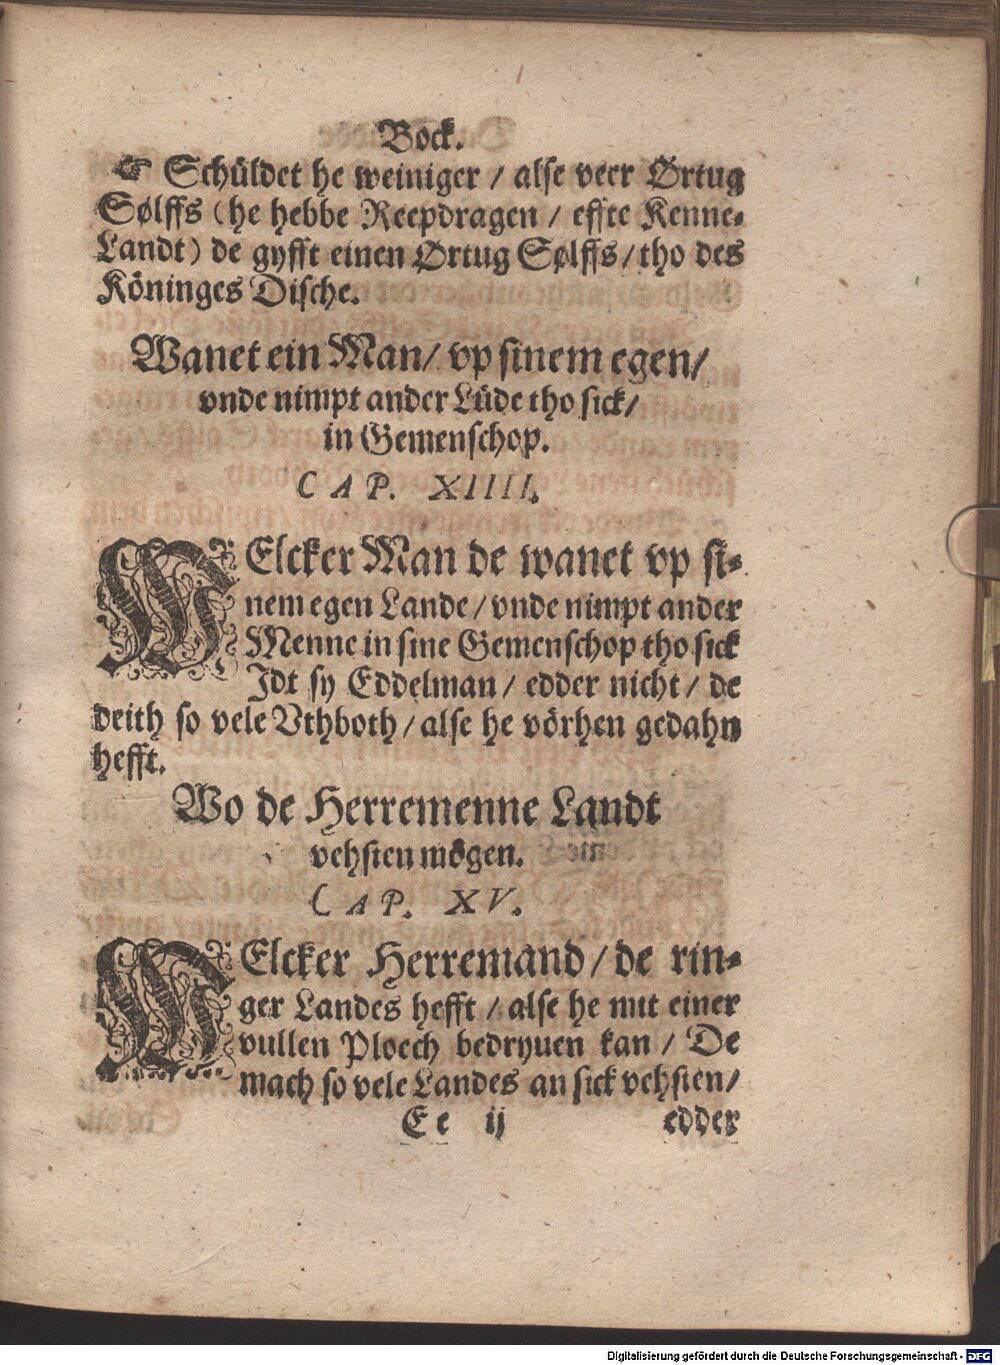 Bock.
☞ Schüldet he weiniger / alse veer Ørtug
Sølffs (he hebbe Reepdragen / effte Kenne-
Landt) de gyfft einen Ørtug Sølffs / tho des
Köninges Dische.
Wanet ein Man / vp sinem egen /
vnde nimpt ander Lüde tho sick /
in Gemenschop.
CAP. XIIII.
WElcker Man de wanet vp si-
nem egen Lande / vnde nimpt ander
Menne in sine Gemenschop tho sick
Idt sy Eddelman / edder nicht / de
deith so vele Vthboth / alse he vörhen gedahn
hefft.
Wo de Herremenne Landt
vehsten mögen.
CAP. XV.
WElcker Herremand / de rin-
ger Landes hefft / alse he mit einer
vullen Ploech bedryuen kan / De
mach so vele Landes an sick vehsten /
Ee ij edder
Digitalisierung gefördert durch die Deutsche Forschungsgemeinschaft - DFG